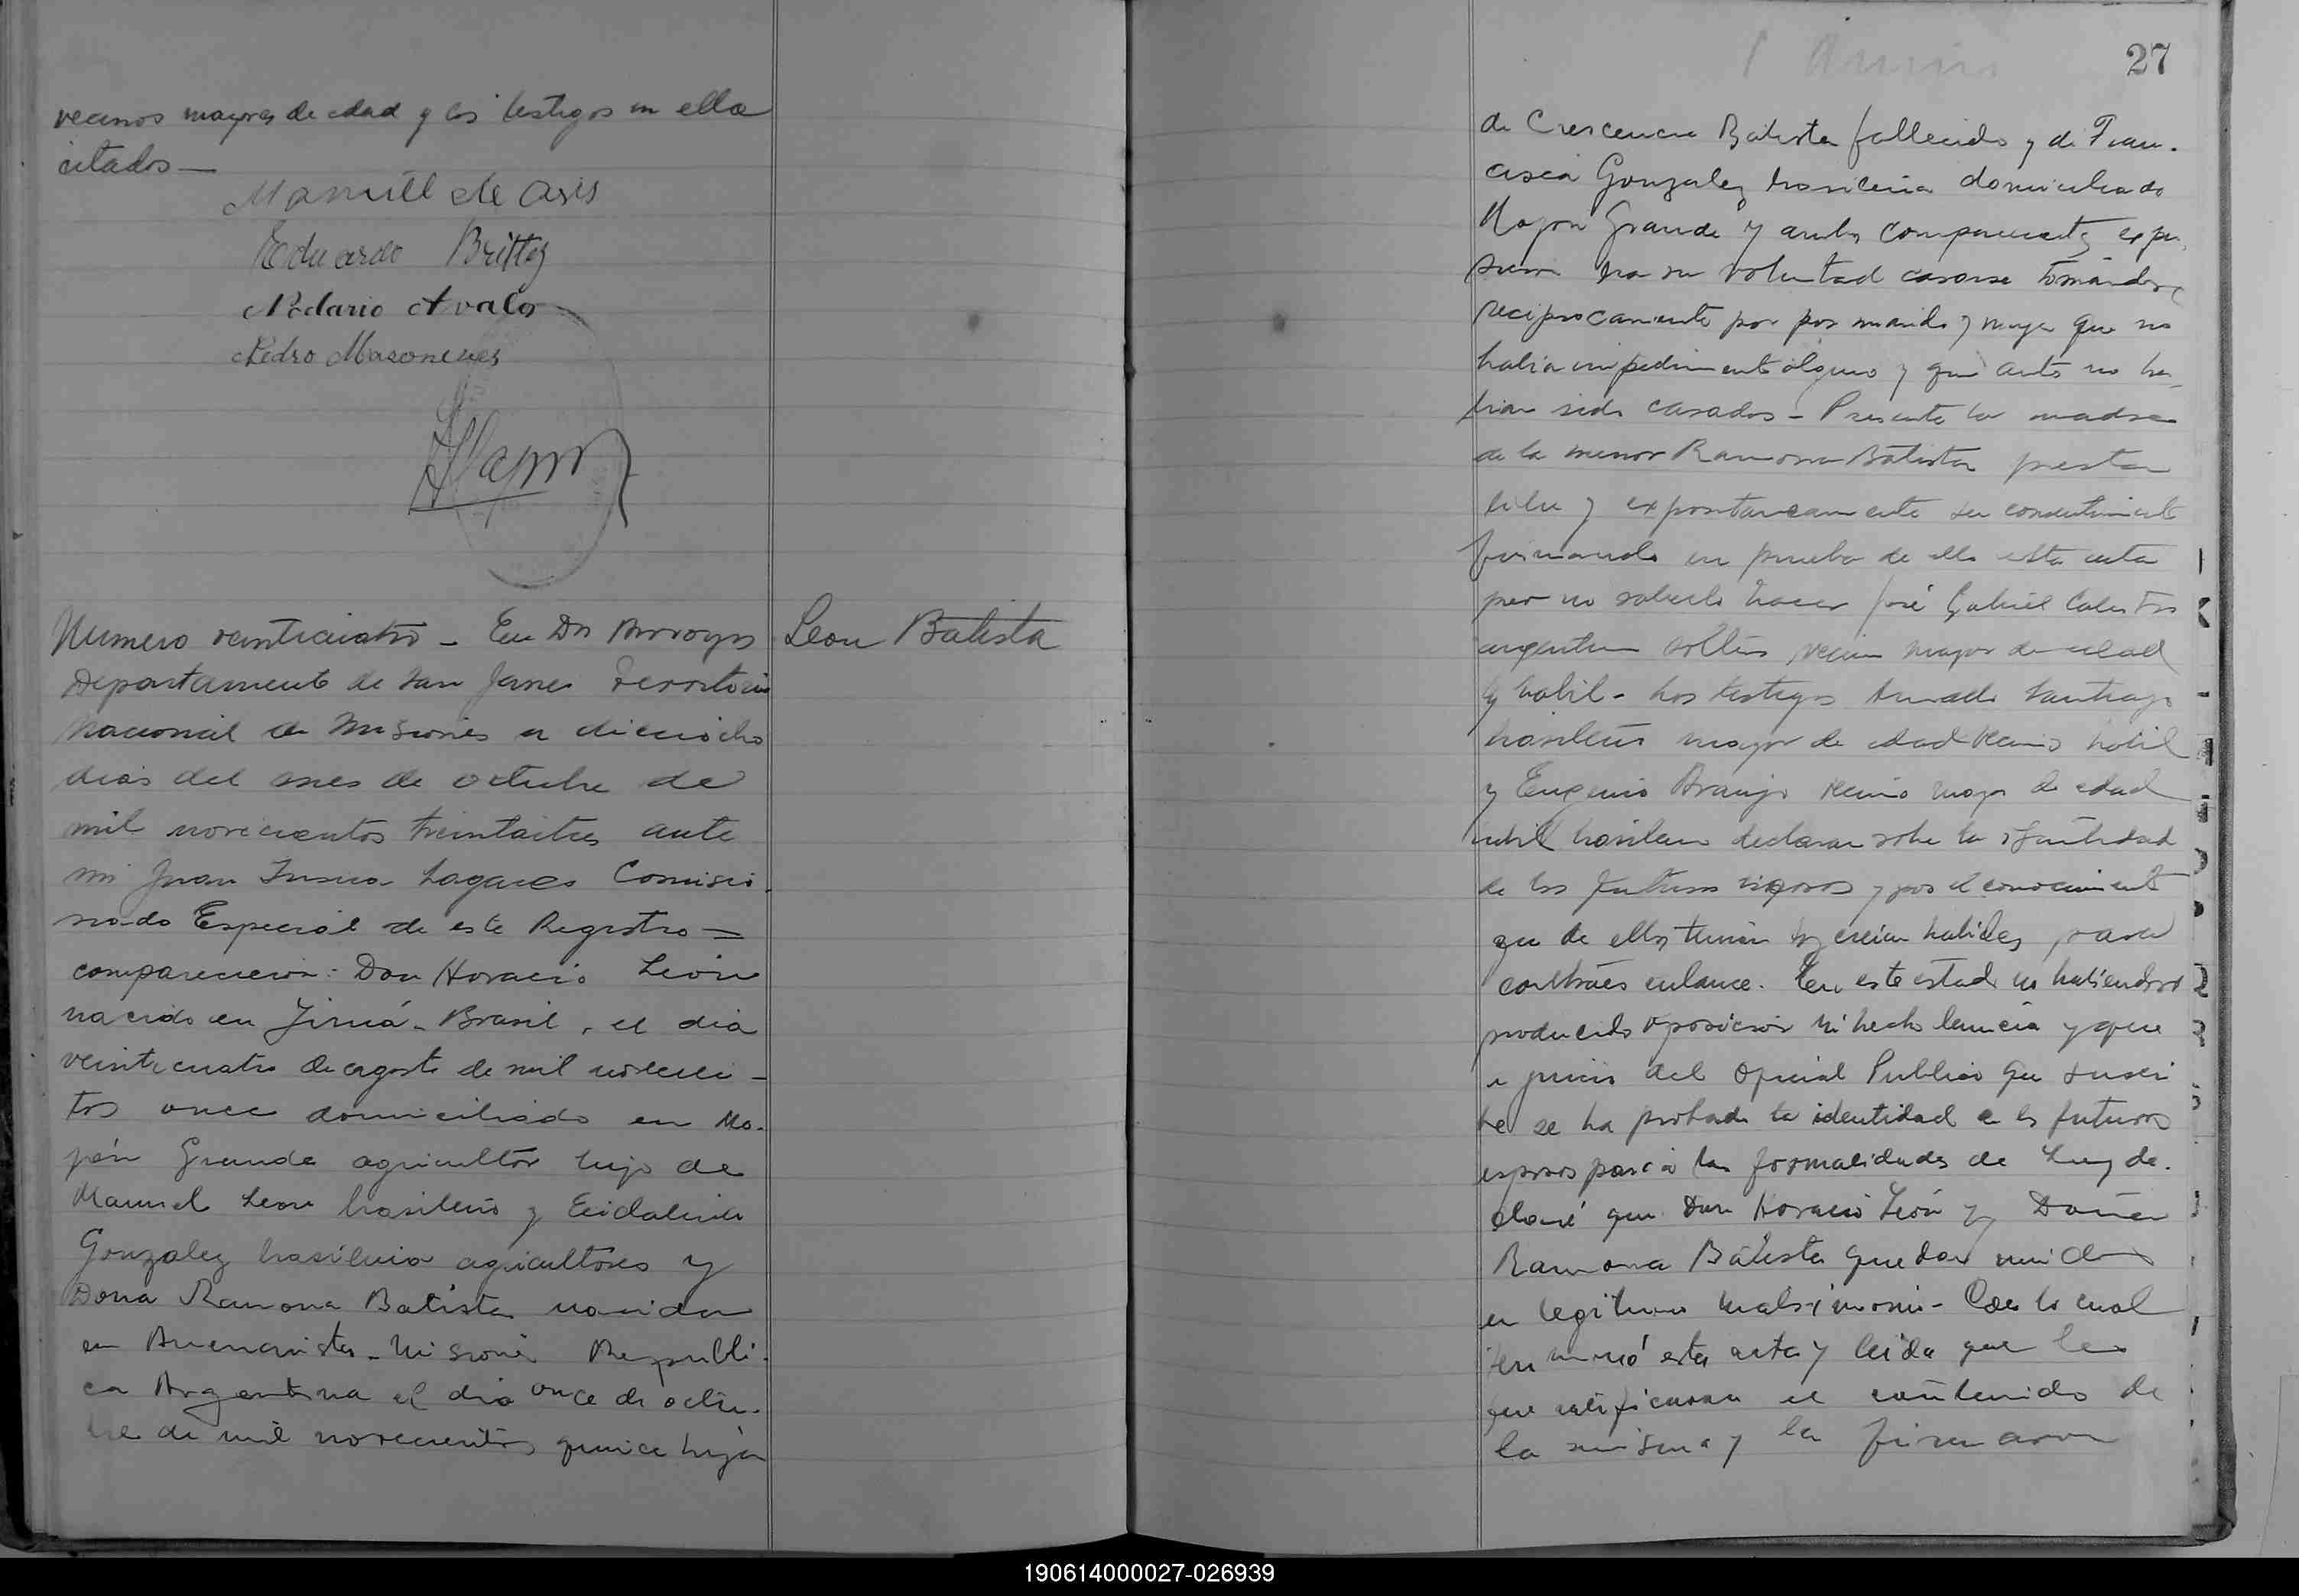 vecinos mayores de edad y los testigos en ella
citados —
Manuel de Asis
Eduardo Brittez
Avalos
Pedro
Numero veinticuatro - En Dos Arroyos
Departamento de San Javier Territorio
Nacional de Misiones a dieciocho
dias del mes de octubre de
mil novecientos treintaitres ante
mi Juan Lagares Comisio-
nado Especial de este Registro =
comparecieron: Don Horacio León
nacido en - Brasil, el dia
veinticuatro de agosto de mil novecien-
tos once domiciliado en Mo-
jón Grande agricultor hijo de
Manuel Leon brasileño y
Gonzalez brasileña agricultores y
Dona Ramona Batista nacida
en - Misiones Republi-
ca Argentina el dia once de octu-
bre de mil novecientos quince hija
Leon Batista
27
de Crescencio Batista fallecido y de Fran-
cisca Gonzalez brasileña domiciliado
Mojon Grande y ambos comparecientes expu-
sieron era su voluntad casarse tomándose
reciprocamente por por marido y mujer que no
habia impedimento alguno y que antes no ha-
bian sido casados - Presente la madre
de la menor Ramona Batista presta
libre y expontaneamente su consentimiento
firmando en prueba de ello esta acta
por no saberlo hacer José Gabriel
argentino soltero vecino mayor de edad
y habil - Los testigos Santiago
brasileño mayor de edad vecino habil
y Eugenio Araujo vecino mayor de edad
habil brasilero declaran sobe la identidad
de los futuros esposos y por el conocimiento
que de ellos tienen los creian habiles para
contraer enlance. En este estado no habiendose
producido oposicion ni hecho denuncia y que
a juicio del Oficial Publico que suscri
be se ha probado la identidad de los futuros
esposos para las formalidades de Ley de-
claré que Don Horacio León y Doña
Ramona Batista quedan unidos
en legitimo matrimonio - Con lo cual
terminó esta acta y leida que les
fue ratificaron el contenido de
la misma y la firmaron
190614000027-026939